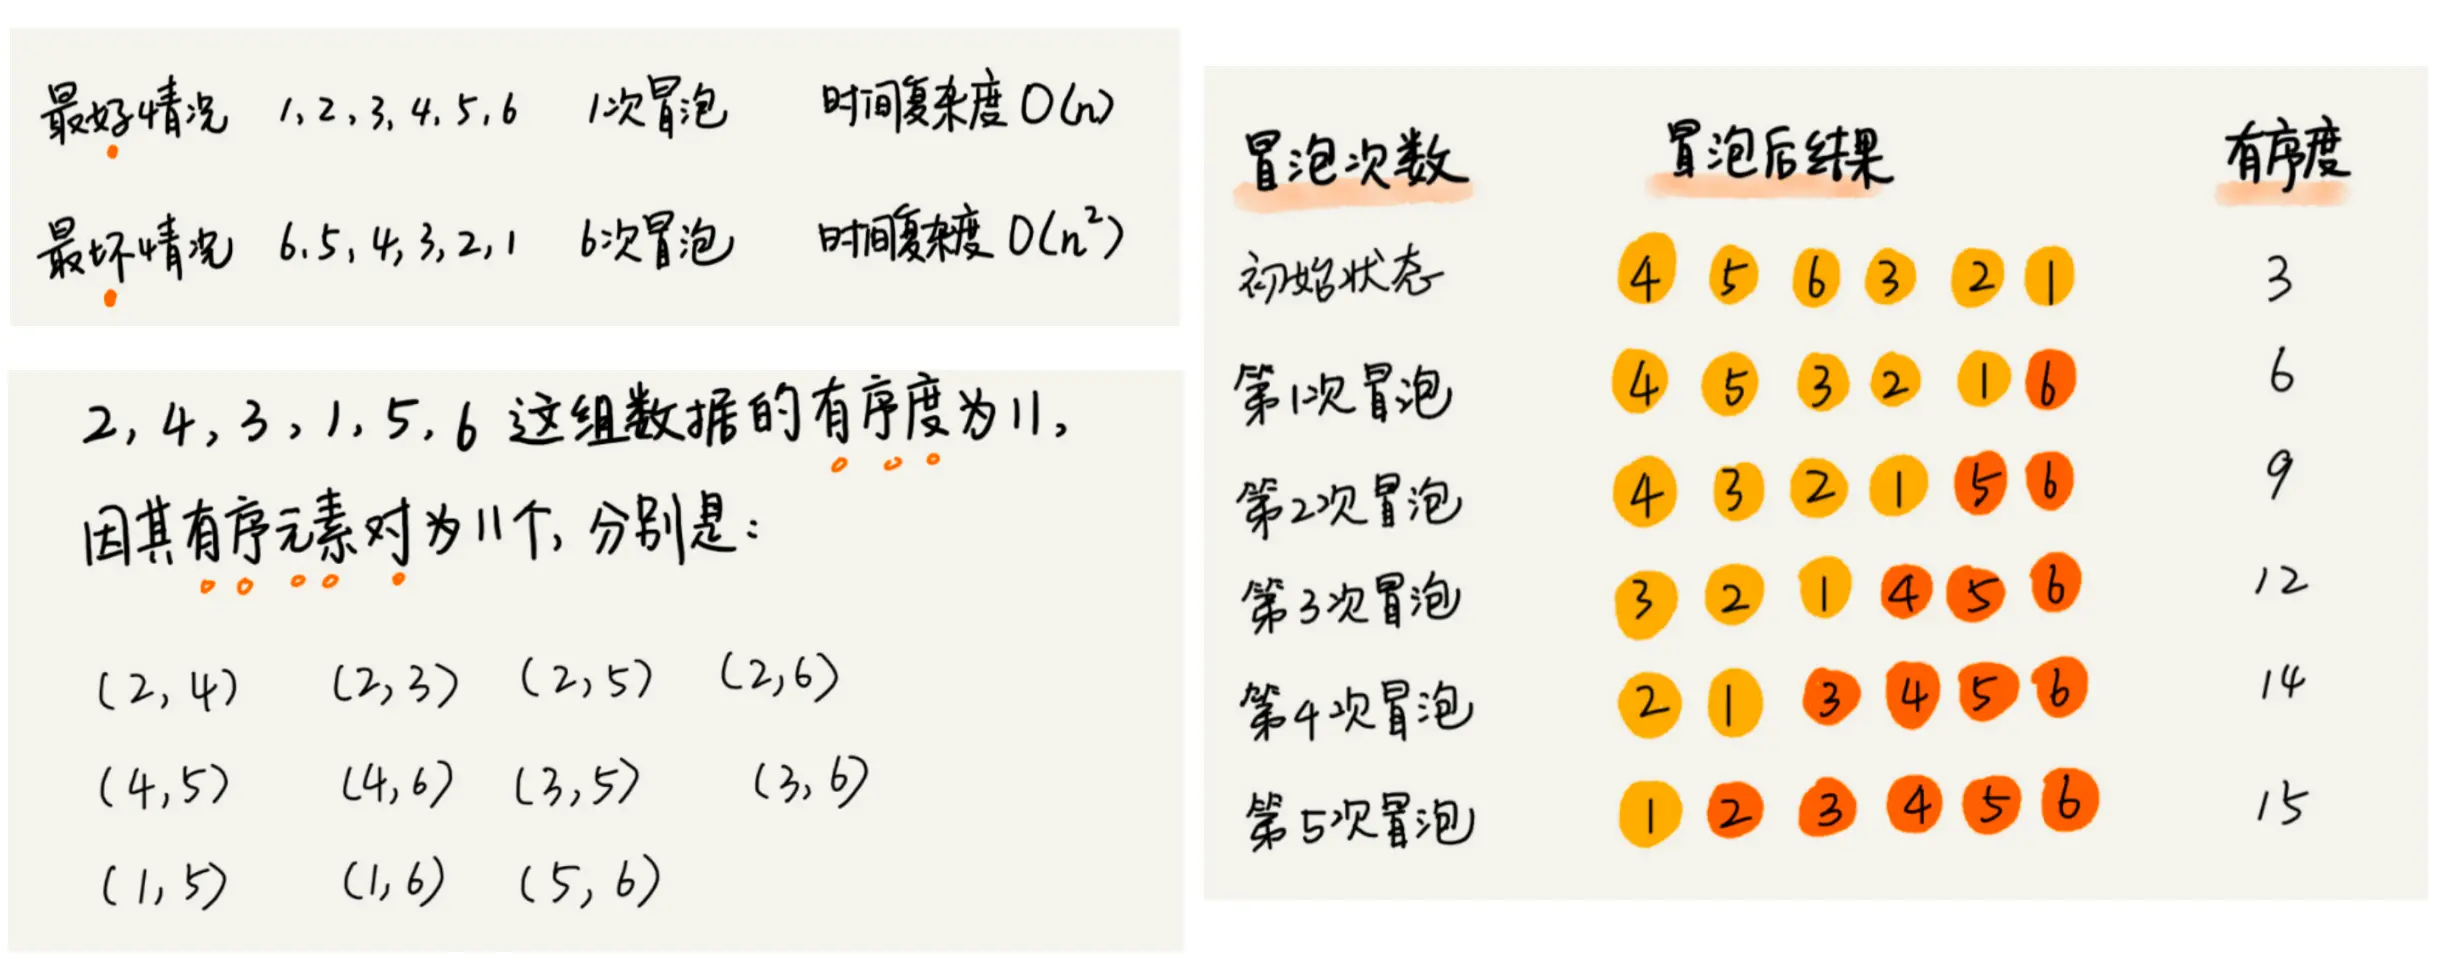 最好情况 1, 2, 3, 4, 5, 6 1次冒泡 时间复杂度 O(n)
最坏情况 6.5, 4, 3, 2, 1 6次冒泡 时间复杂度 O(n²)
2, 4, 3, 1, 5, 6 这组数据的有序度为11,
因其有序元素对为11个, 分别是:
(2, 4) (2, 3) (2, 5) (2, 6)
(4, 5) (4, 6) (3, 5) (3, 6)
(1, 5) (1, 6) (5, 6)
冒泡次数 冒泡后结果 有序度
初始状态 4 5 6 3 2 1 3
第1次冒泡 4 5 3 2 1 6 6
第2次冒泡 4 3 2 1 5 6 9
第3次冒泡 3 2 1 4 5 6 12
第4次冒泡 2 1 3 4 5 6 14
第5次冒泡 1 2 3 4 5 6 15